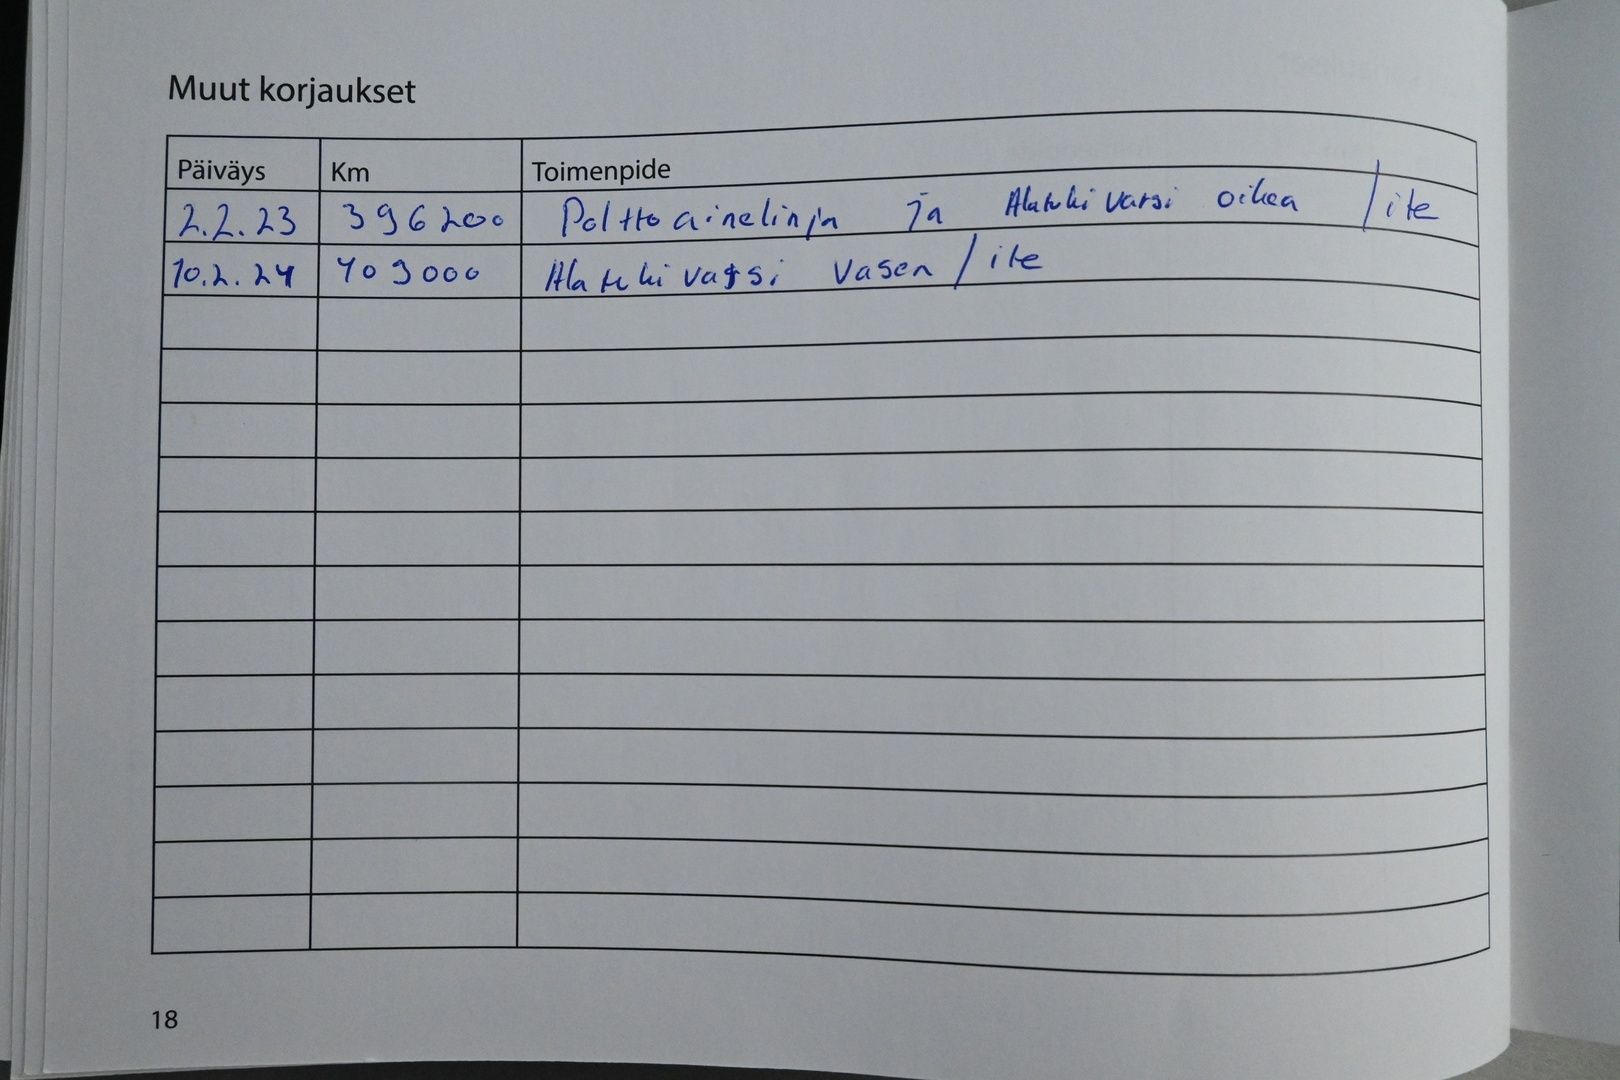 Muut korjaukset
Päiväys Km Toimenpide
2.2.23 396200 Polttoainelinja ja Alatukivarsi oikea / ite
10.2.24 409000 Alatukivarsi vasen / ite
18